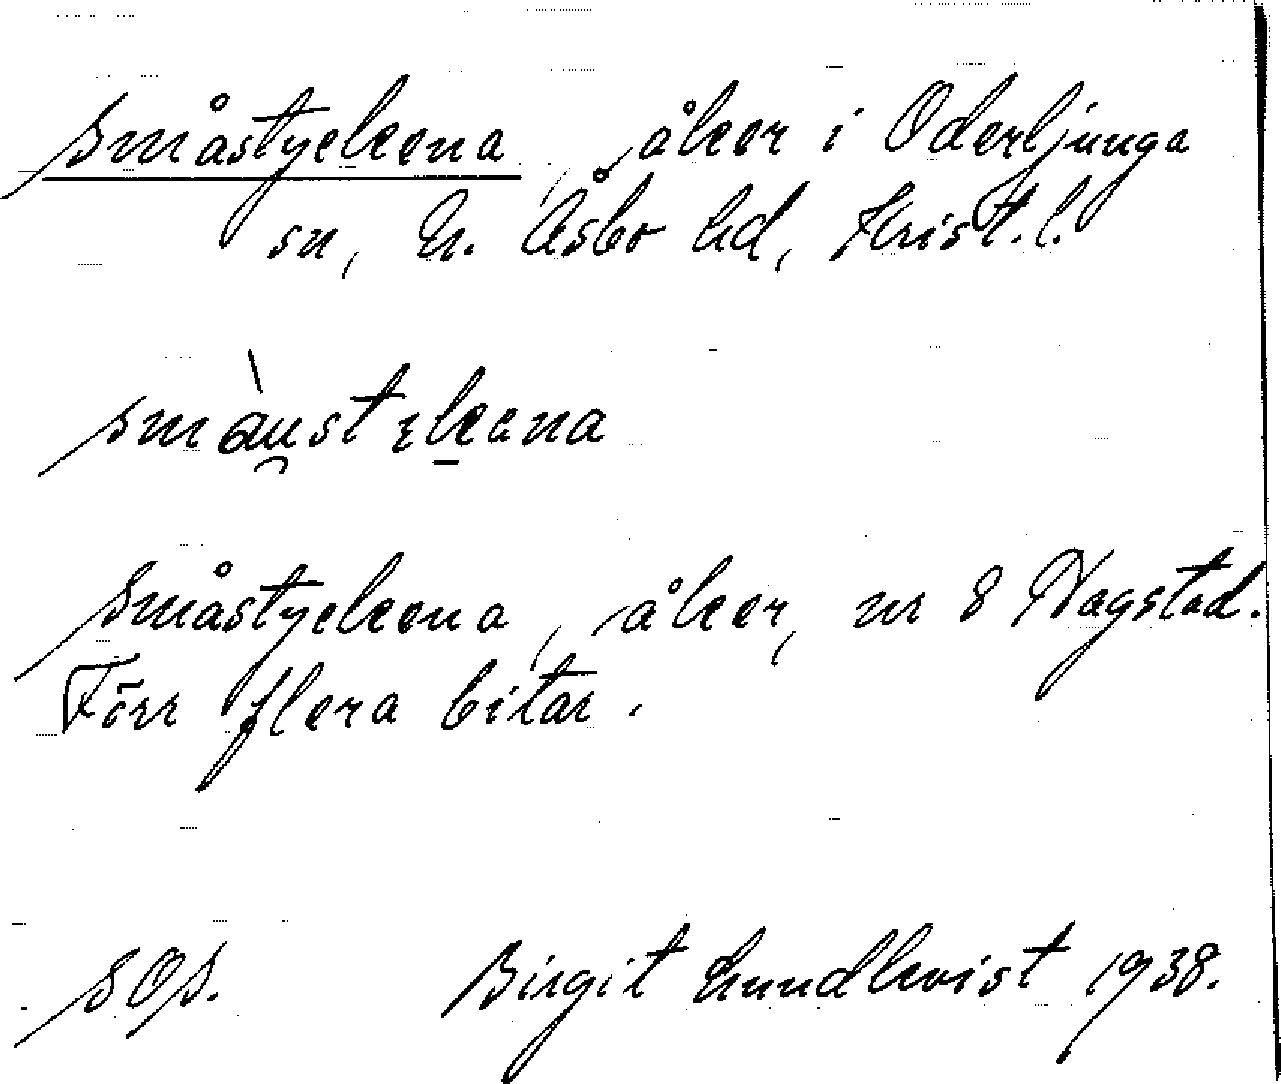 Småstyckena, åker i Oderljunga
sn, N. Åsbo hd, Krist. l.
småstyckena, åker, nr 8 Vagstad.
Förr flera bitar.
SOS. Birgit Lundkvist 1938.